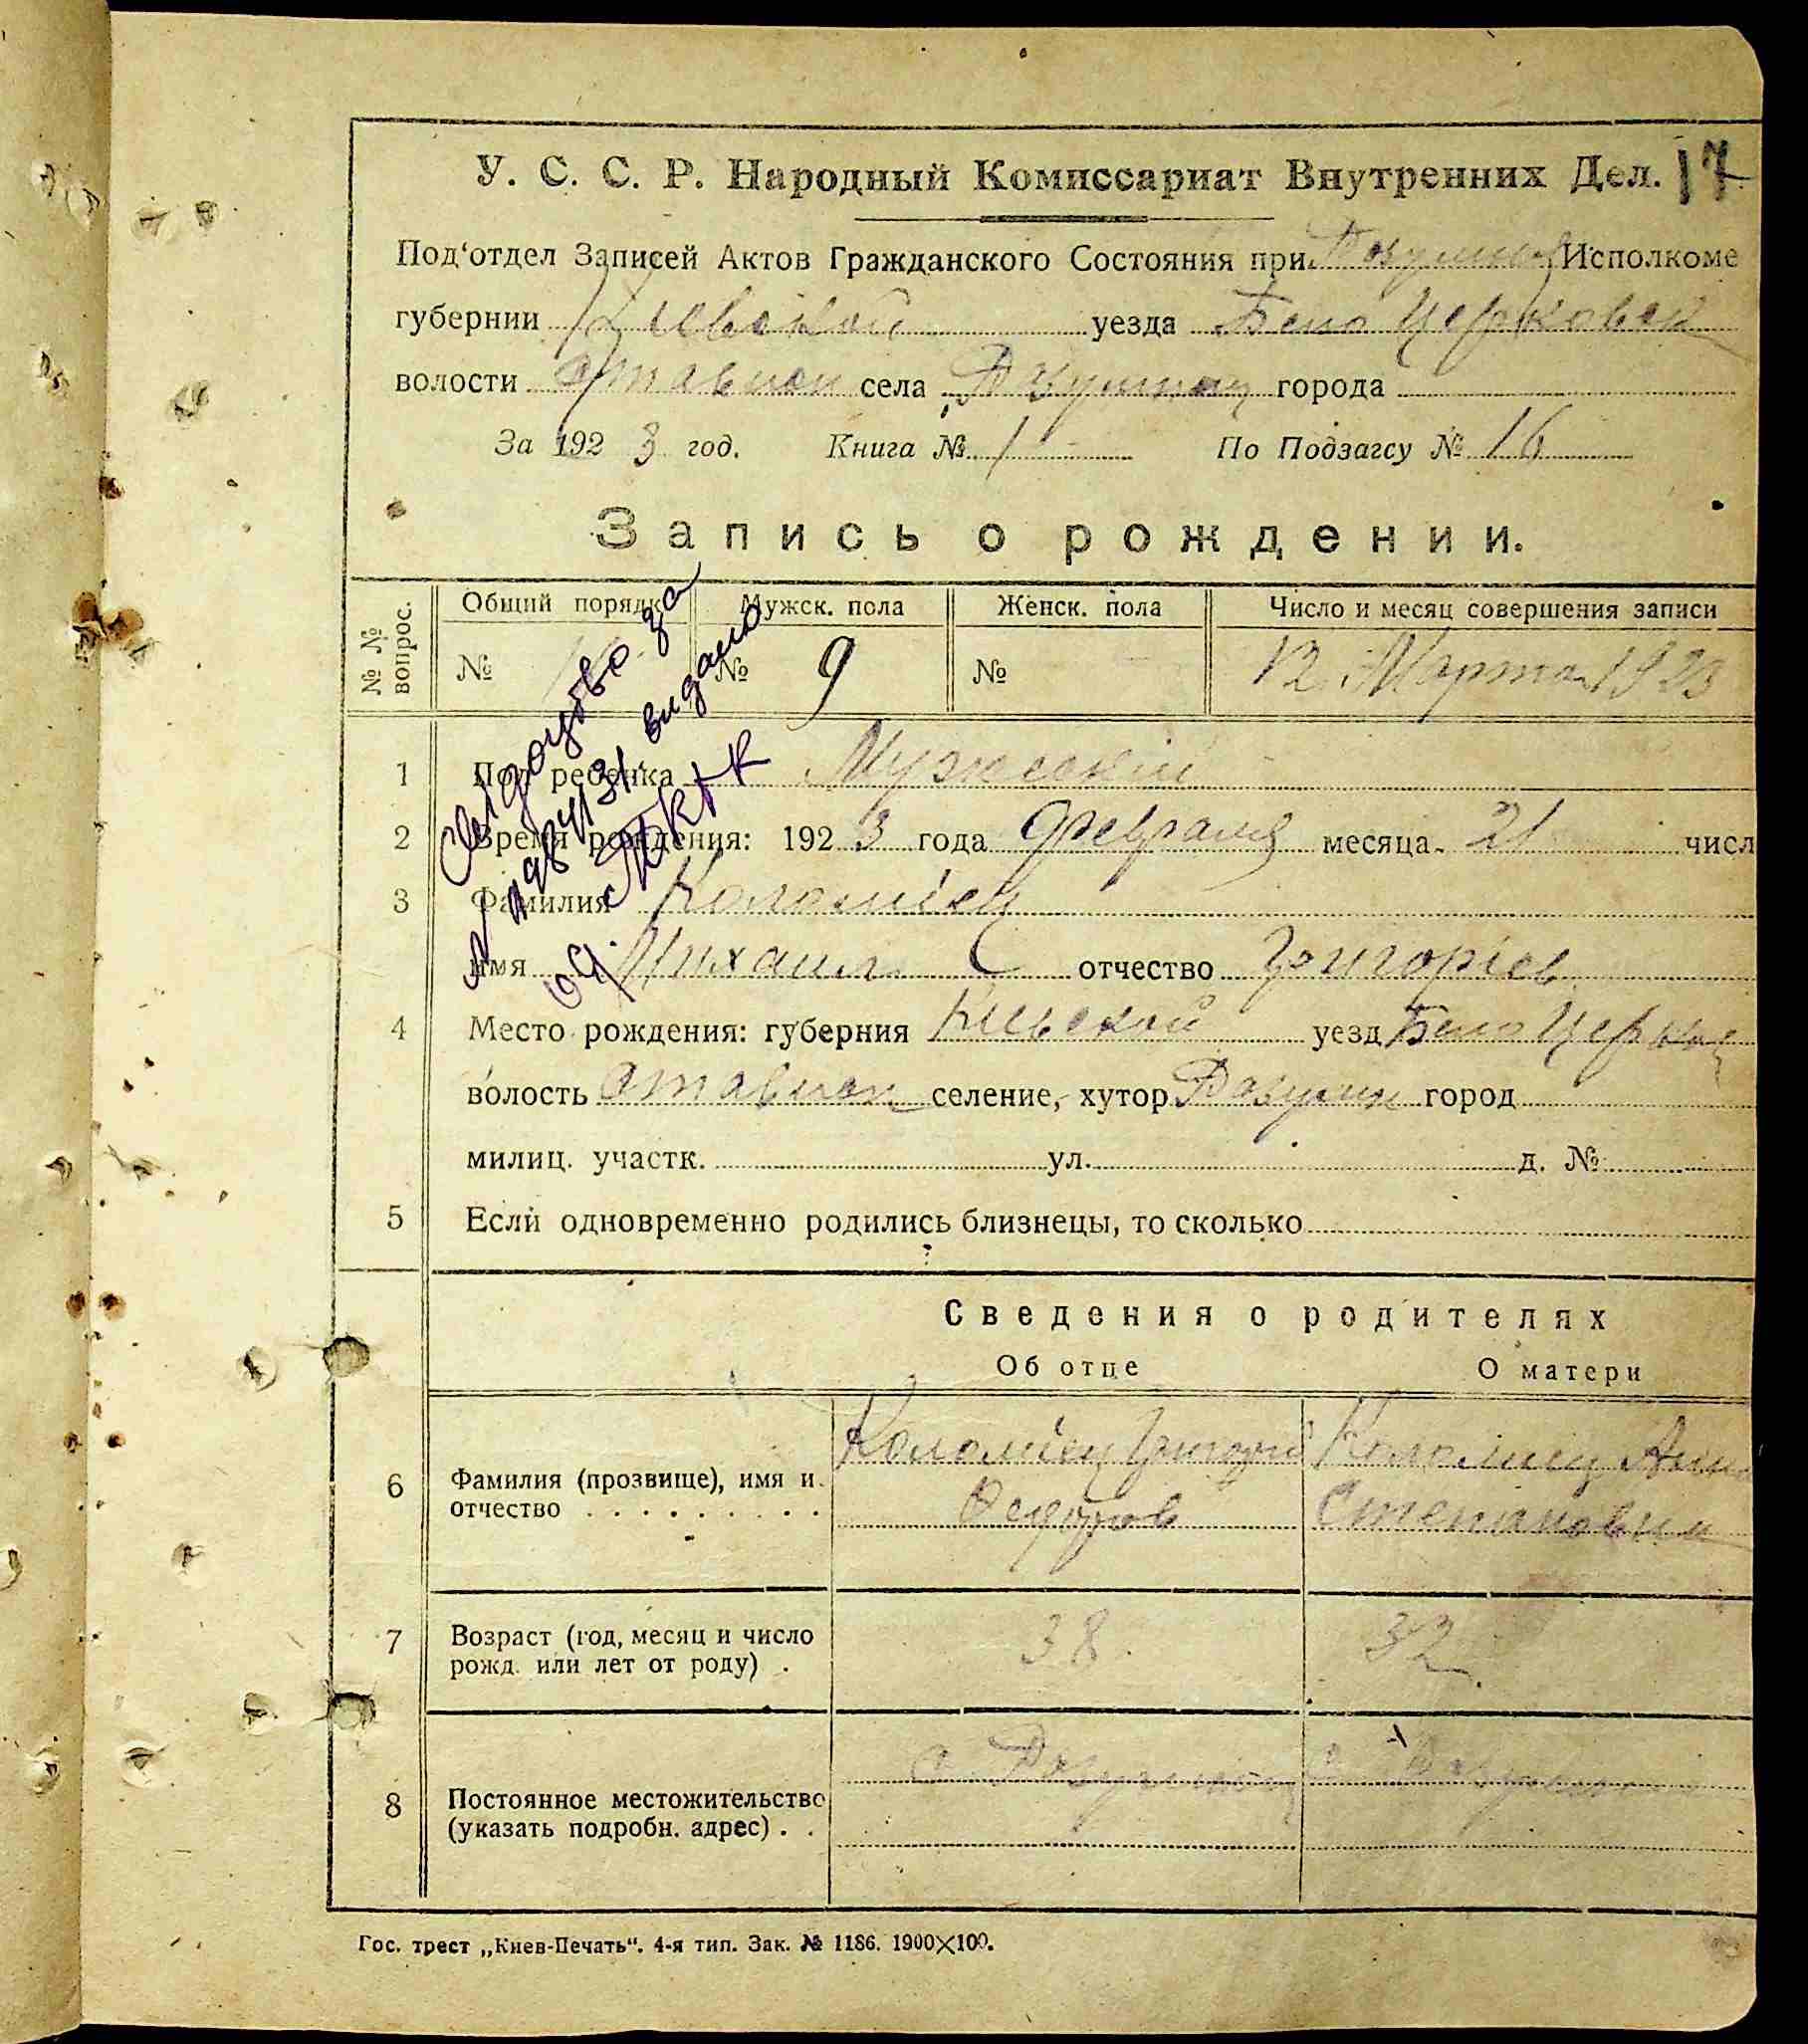 У. С. С. Р. Народный Комиссариат Внутренних Дел. 17
Под‘отдел Записей Актов Гражданского Состояния при Исполкоме
губернии Киевской уезда Бело Церковск
волости села города
За 1923 год. Книга № 1 По Подзагсу № 16
Запись о рождении.
№ № вопрос.
Общий порядк Мужск. пола Женск. пола Число и месяц совершения записи
№ № 9 № 12 Марта 1923
Свідоцтво за
видано
1 Пол ребенка Мужеский
2 Время рождения: 1923 года Февраля месяца 21 числ
3 Фамилия Коломіец
имя Михаил отчество Григоріев
4 Место рождения: губерния Киевской уезд Бело Церков
волость селение, хутор город
милиц. участк. ул. д. №
5 Если одновременно родились близнецы, то сколько
Сведения о родителях
Об отце О матери
6 Фамилия (прозвище), имя и отчество
Коломіец Григорій
Коломиец Анн
Степановна
7 Возраст (год, месяц и число рожд. или лет от роду) .
38. 32
8 Постоянное местожительство (указать подробн. адрес) . .
Гос. трест „Киев-Печать“. 4-я тип. Зак. № 1186. 1900×100.